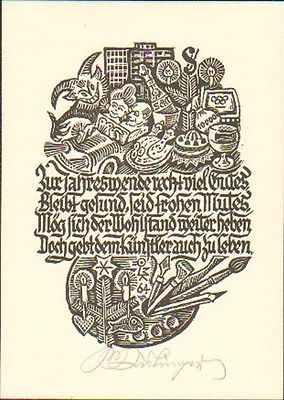 $
10000
Zur Jahreswende recht viel Gutes
Bleibt gesund, seid frohen Mutes
Mög sich der Wohlstand weiter heben
Doch gebt dem Künstler auch zu leben
64